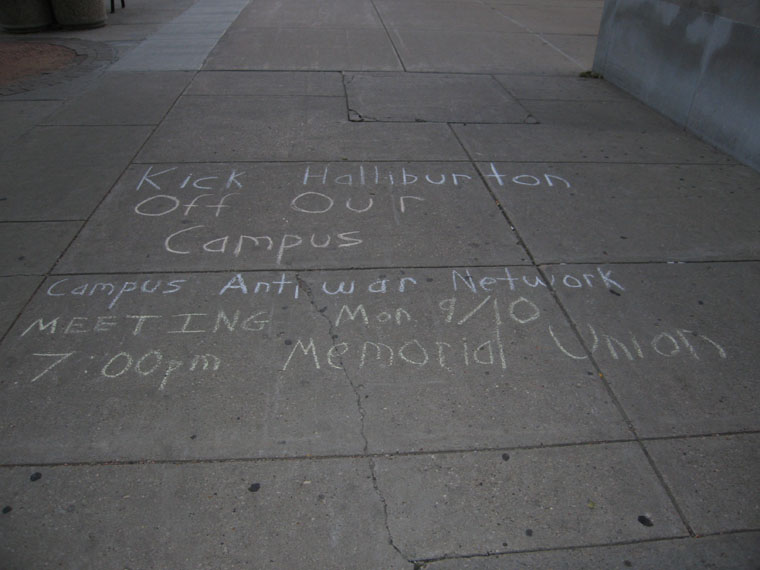 Kick Halliburton
Off Our
Campus
Campus Antiwar Network
MEETING Mon 9/10
7:00pm Memorial Union